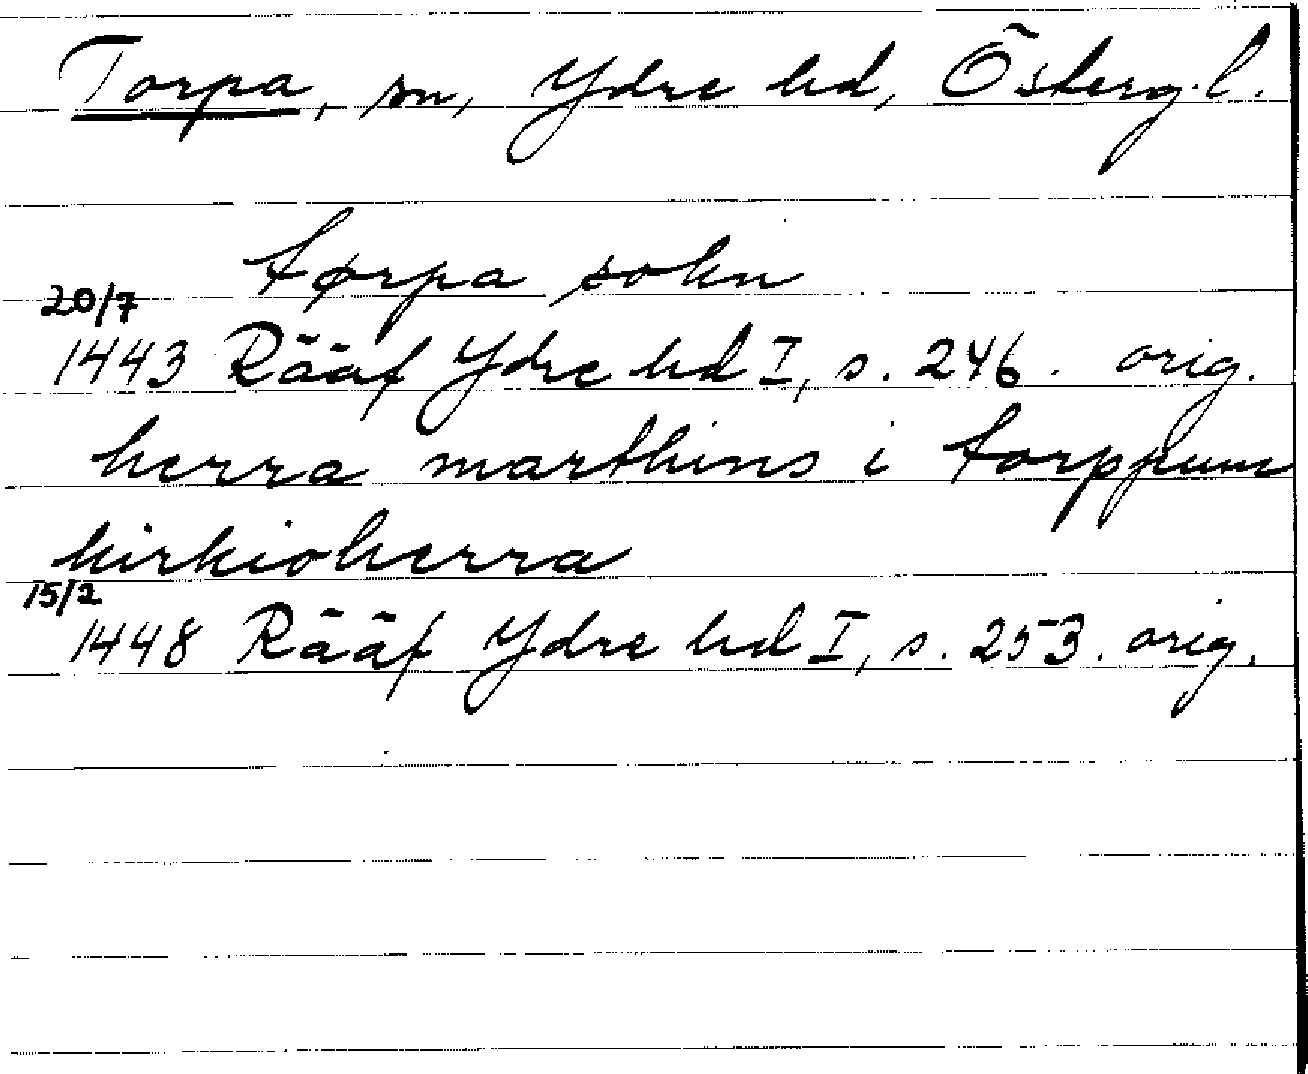 Torpa, sn, Ydre hd, Österg.l.
tørpa sokn
20/7
1443 Rääf Ydre hd I, s. 246. orig.
herra marthins i torppum
kirkioherra
15/2
1448 Rääf Ydre hd I, s. 253. orig.